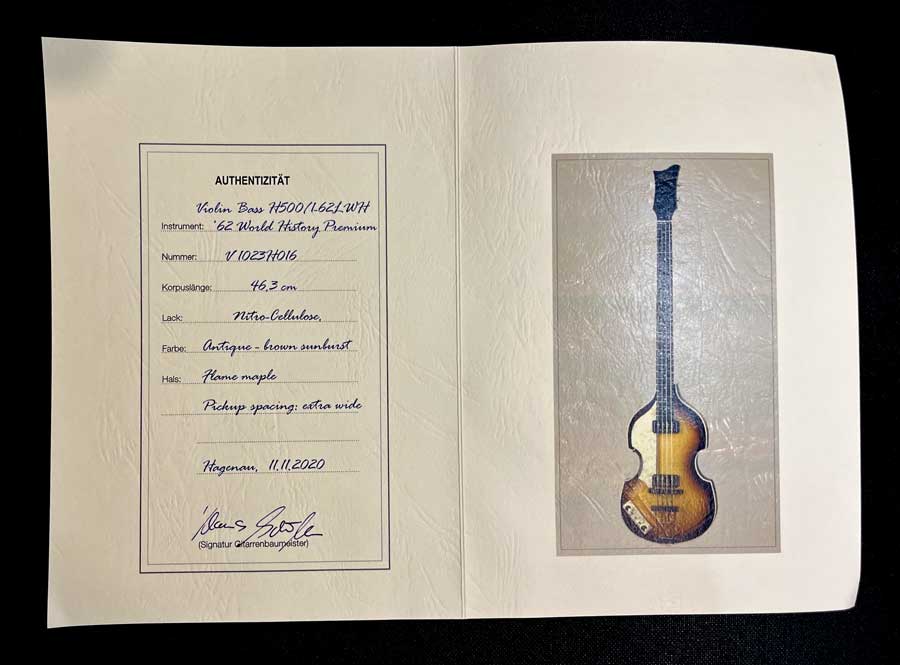 AUTHENTIZITÄT
Violin Bass H500/1.62LWH
Instrument: '62 World History Premium
Nummer: V1023H016
Korpuslänge: 46,3 cm
Lack: Nitro-Cellulose,
Farbe: Antique - brown sunburst
Hals: Flame maple
Pickup spacing: extra wide
Hagenau, 11.11.2020
(Signatur Gitarrenbaumeister)